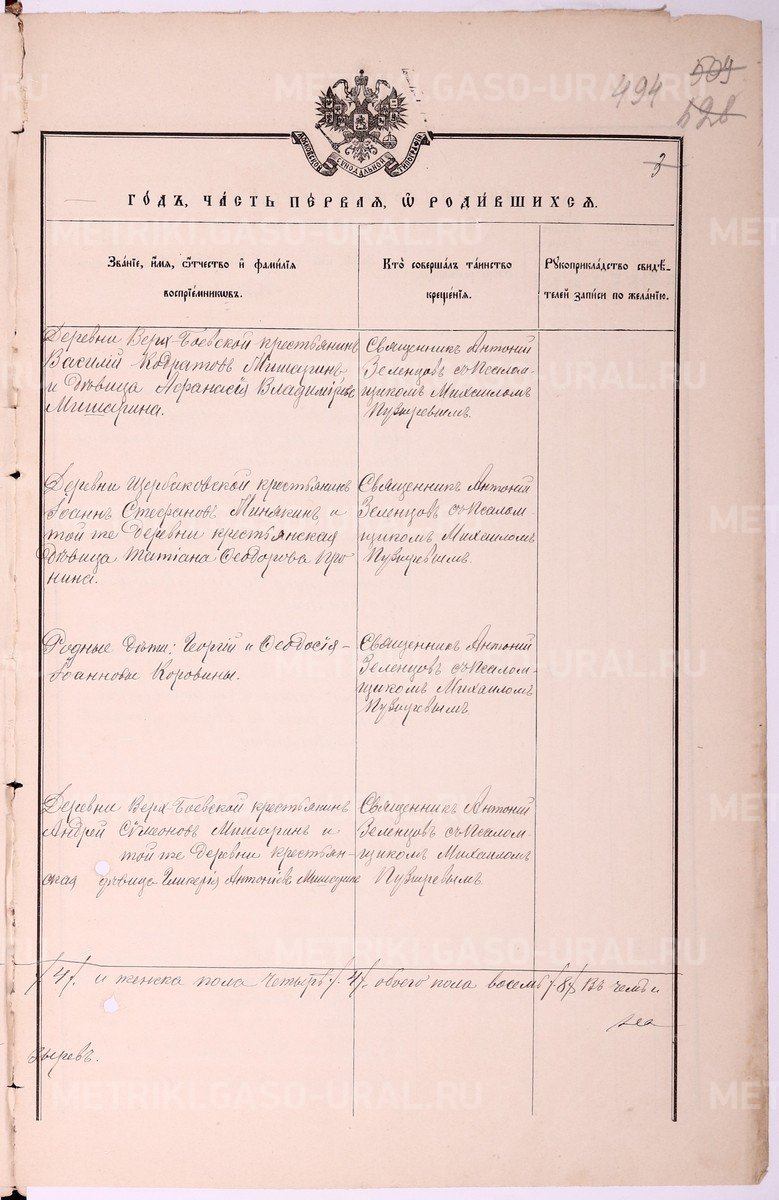 494 504
528
МОСКОВСКОЙ СѴНОДАЛЬНОЙ ТИПОГРАФІИ
3
ГОДЪ, ЧАСТЬ ПЕРВАЯ, Ѿ РОДИВШИХСЯ.
Званіе, имя, отчество и фамилія
воспріемниковъ.
Кто совершалъ таинство
крещенія.
Рукоприкладство свидѣ-
телей записи по желанію.
Деревни Верх-Боевской крестьянинъ
Василій Кодратовъ Мишаринъ
и дѣвица Афанасія Владимірова
Мишарина.
Священникъ Антоній
Зеленцовъ съ Псалом-
щикомъ Михаиломъ
Пузыревымъ.
Деревни Щербаковской крестьянинъ
Іоаннъ Стефановъ Минякинъ и
той же деревни крестьянская
дѣвица Татіана Ѳеодорова Про
нина.
Священникъ Антоній
Зеленцовъ съ Псалом-
щикомъ Михаиломъ
Пузыревымъ.
Родные дѣти: Георгій и Ѳеодосія
Іоанновы Коровины.
Священникъ Антоній
Зеленцовъ съ Псалом-
щикомъ Михаиломъ
Пузыревымъ.
Деревни Верх-Боевской крестьянинъ
Андрей Сѵмеоновъ Мишаринъ и
той же деревни крестьян-
ская дѣвица Гликерія Антоніева Мишарина
Священникъ Антоній
Зеленцовъ съ Псалом-
щикомъ Михаиломъ
Пузыревымъ.
/4/. и женска пола четыре /4/. обоего пола восемь /8/ Въ чемъ и
зыревъ.
METRIKI.GASO-URAL.RU